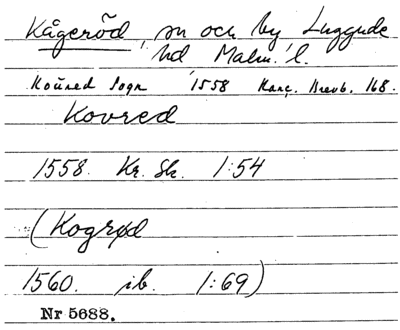 Kågeröd, sn och by Luggude
hd Malm. l.
Koūred Sogn 1558 Kanc. Brevb. 168.
Kovred
1558. Kr. Sk. 1:54
(Kogrød
1560. ib. 1:69)
Nr 5688.